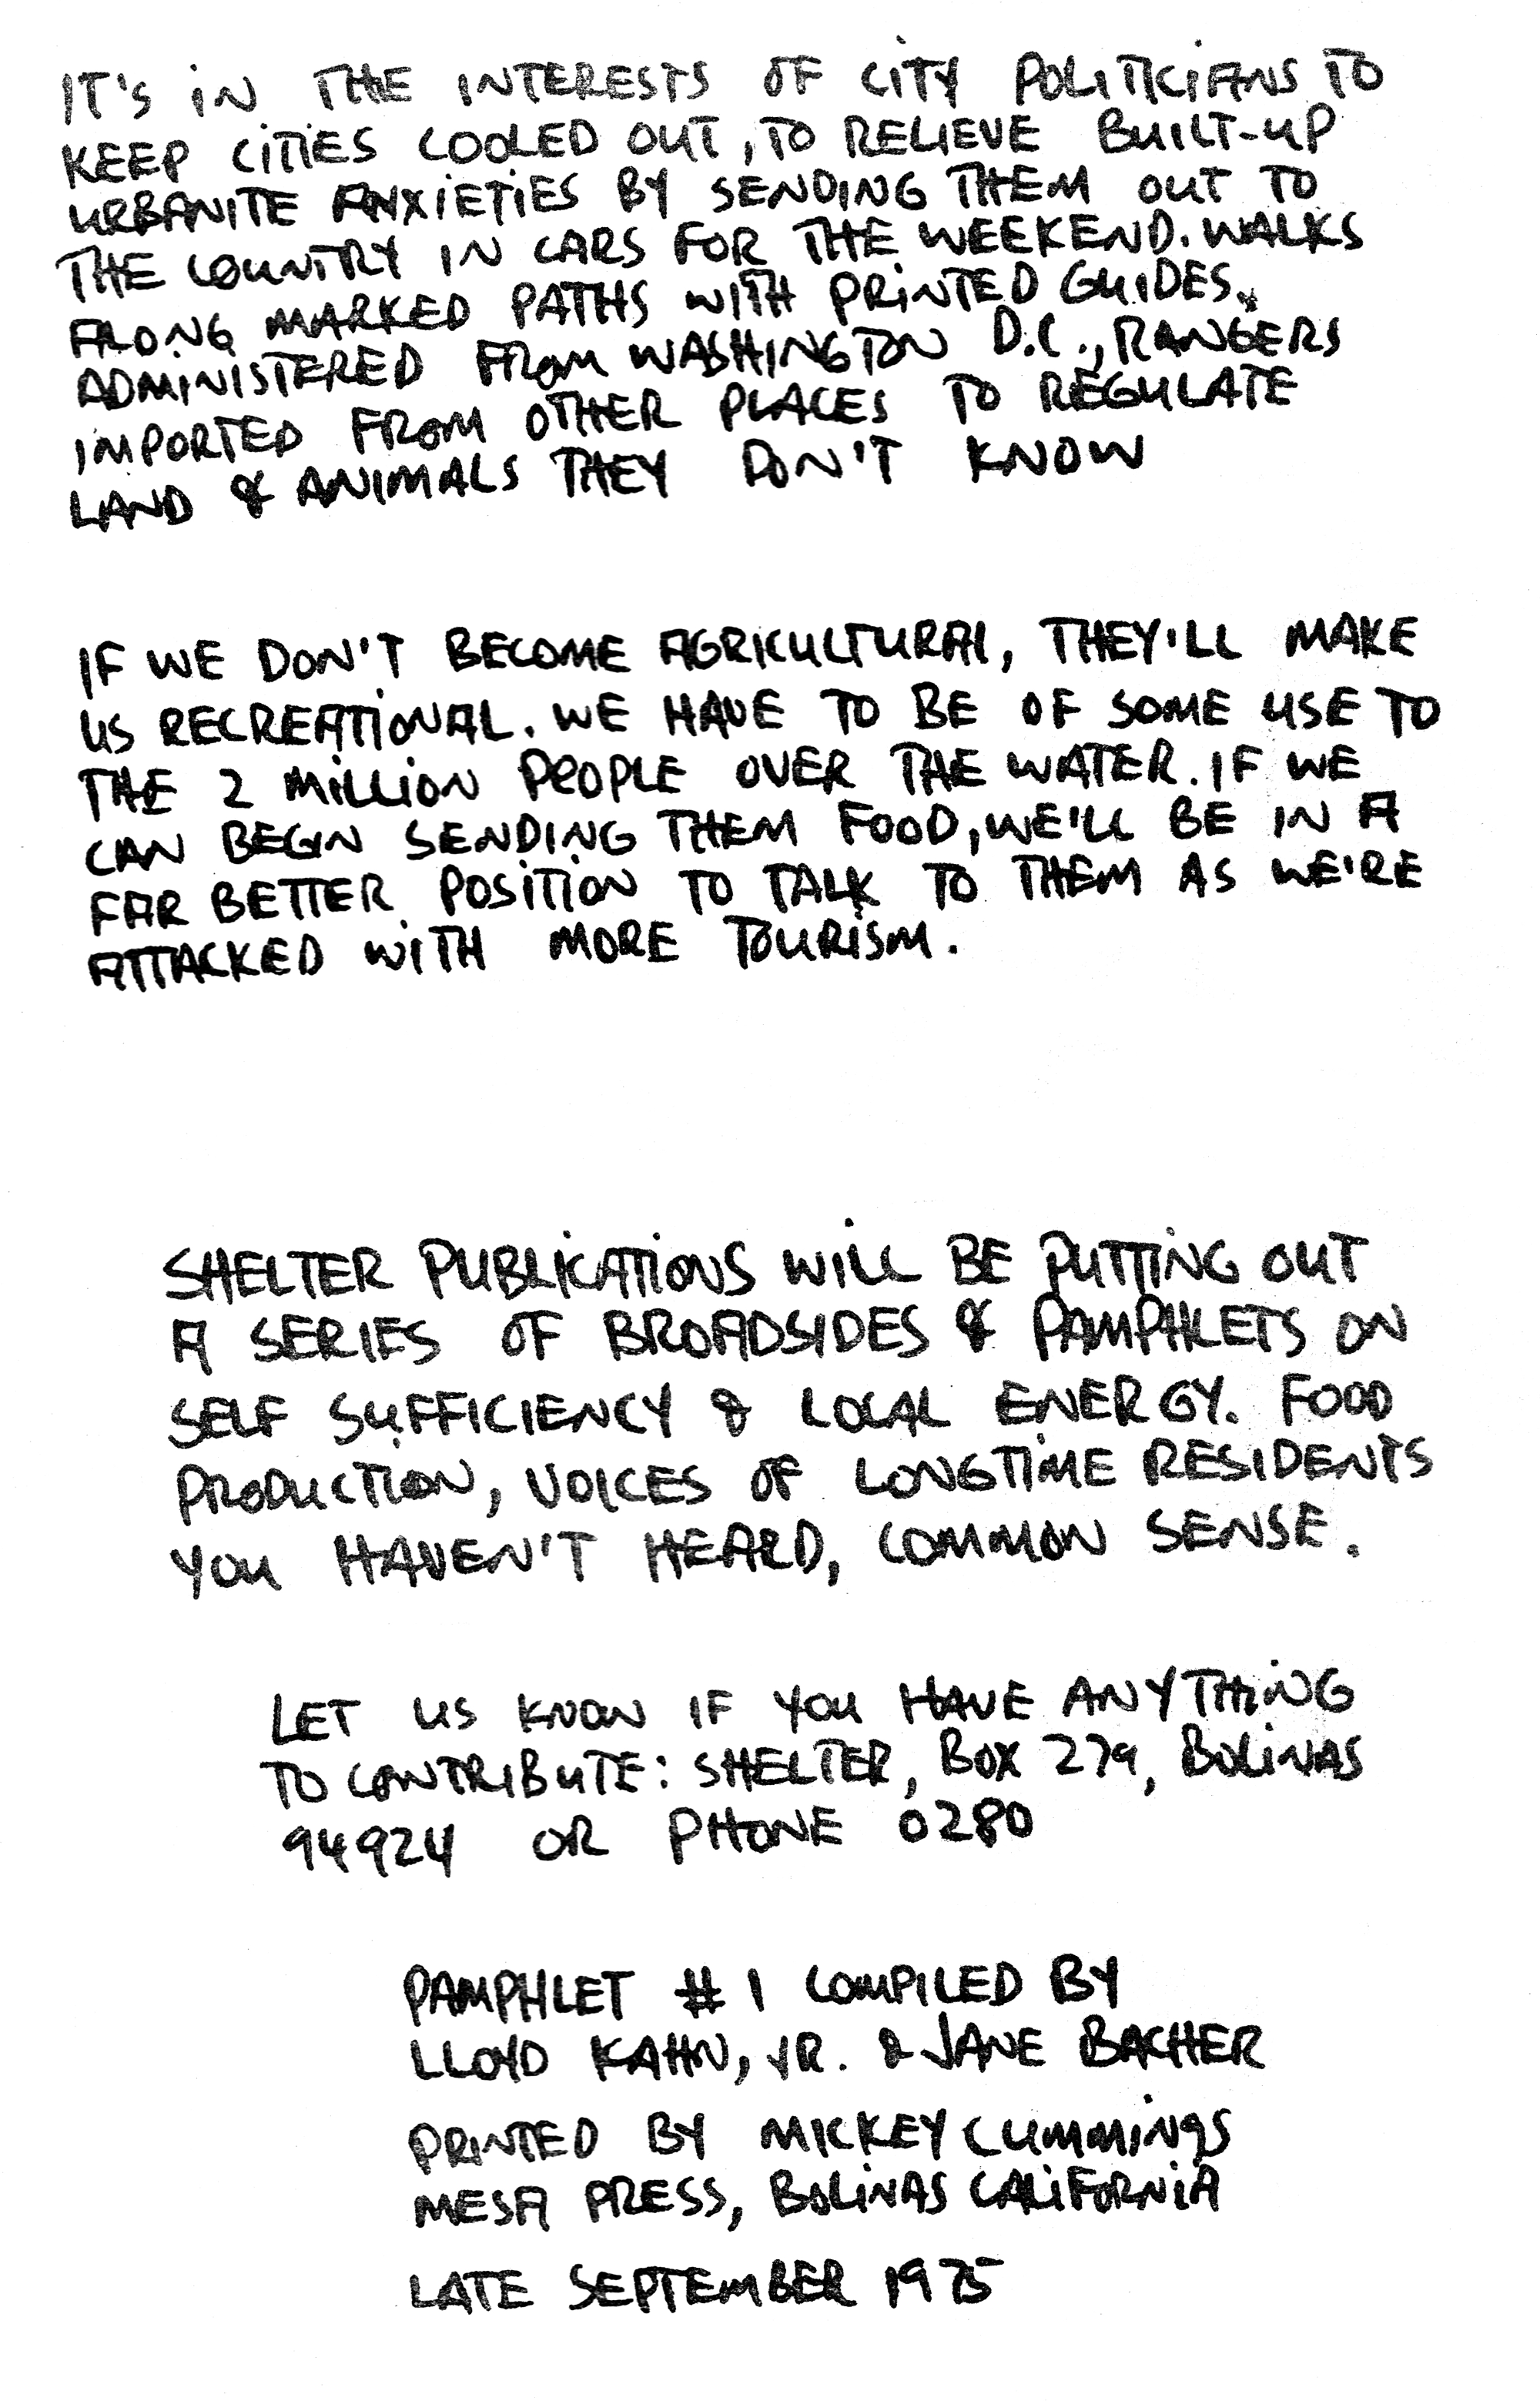 IT'S IN THE INTERESTS OF CITY POLITICIANS TO
KEEP CITIES COOLED OUT, TO RELIEVE BUILT-UP
URBANITE ANXIETIES BY SENDING THEM OUT TO
THE COUNTRY IN CARS FOR THE WEEKEND. WALKS
ALONG MARKED PATHS WITH PRINTED GUIDES,
ADMINISTERED FROM WASHINGTON D.C., RANGERS
IMPORTED FROM OTHER PLACES TO REGULATE
LAND & ANIMALS THEY DON'T KNOW
IF WE DON'T BECOME AGRICULTURAL, THEY'LL MAKE
US RECREATIONAL. WE HAVE TO BE OF SOME USE TO
THE 2 MILLION PEOPLE OVER THE WATER. IF WE
CAN BEGIN SENDING THEM FOOD, WE'LL BE IN A
FAR BETTER POSITION TO TALK TO THEM AS WE'RE
ATTACKED WITH MORE TOURISM.
SHELTER PUBLICATIONS WILL BE PUTTING OUT
A SERIES OF BROADSIDES & PAMPHLETS ON
SELF SUFFICIENCY & LOCAL ENERGY. FOOD
PRODUCTION, VOICES OF LONGTIME RESIDENTS
YOU HAVEN'T HEARD, COMMON SENSE.
LET US KNOW IF YOU HAVE ANYTHING
TO CONTRIBUTE: SHELTER, BOX 279, BOLINAS
94924 OR PHONE 0280
PAMPHLET #1 COMPILED BY
LLOYD KAHN, JR. & JANE BACHER
PRINTED BY MICKEY CUMMINGS
MESA PRESS, BOLINAS CALIFORNIA
LATE SEPTEMBER 1975